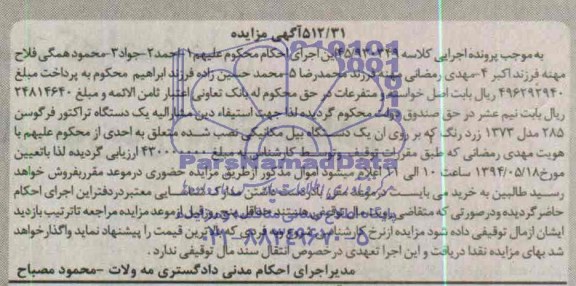 ۵۱۲/۳۱آگهی مزایده
به موجب پرونده اجرایی کلاسه ۴۵/۹۳۰۳۴۹ این اجرای احکام محکوم علیهم ۱-احمد۲-جواد۳-محمود همگی فلاح
مهنه فرزند اکبر ۴-مهدی رمضانی مهنه فرزند محمدرضا ۵-محمد حسین زاده فرزند ابراهیم محکوم به پرداخت مبلغ
۴۹۶۲۹۲۹۴۰ ریال بابت اصل خواسته و متفرعات در حق محکوم له بانک تعاونی اعتبار ثامن الائمه و مبلغ ۲۴۸۱۴۶۴۰
ریال بابت نیم عشر در حق صندوق دولت محکوم گردیده لذا جهت استیفاء دین مشارالیه یک دستگاه تراکتور فرگوسن
۲۸۵ مدل ۱۳۷۳ زرد رنگ که بر روی آن یک دستگاه بیل مکانیکی نصب شده متعلق به احدی از محکوم علیهم با
هویت مهدی رمضانی که طبق مقررات توقیف و توسط کارشناس به مبلغ ۴۳۰۰۰۰۰۰۰ ارزیابی گردیده لذا باتعیین
مورخ۱۳۹۴/۰۵/۱۸ ساعت ۱۰ الی ۱۱ اعلام میشود اموال مذکور ازطریق مزایده حضوری درموعد مقرربفروش خواهد
رسید طالبین به خرید می بایست درموعد مقرر بادردست داشتن مدارک شناسایی معتبردردفتراین اجرای احکام
حاضرگردیده ودرصورتی که متقاضی بازدید مال توقیفی هستند حداقل پنج روز قبل ازموعد مزایده مراجعه تاترتیب بازدید
ایشان ازمال توقیفی داده شود مزایده ازنرخ کارشناسی شروع و به فردی که بالاترین قیمت را پیشنهاد نماید واگذار خواهد
شد بهای مزایده نقدا دریافت و این اجرا تعهدی درخصوص انتقال سند مال توقیفی ندارد .
مدیراجرای احکام مدنی دادگستری مه ولات -محمود مصباح
ParsNamadData
۰۲۱-۸۸۳۴۹۶۷۰-۵